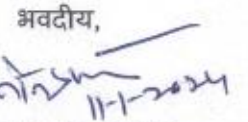 भवदीय,
11-1-2024